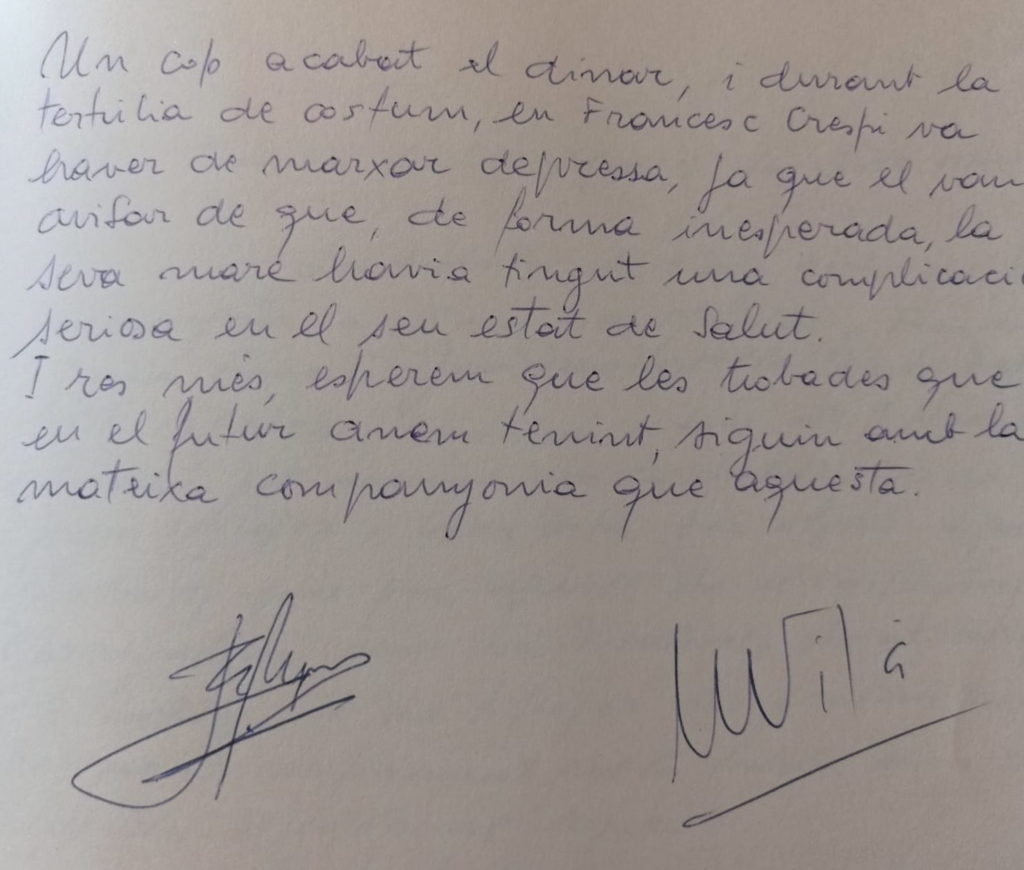 Un cop acabat el dinar, i durant la
tertúlia de costum, en Francesc Crespi va
haver de marxar depressa, ja que el van
avisar de que, de forma inesperada, la
seva mare havia tingut una complicació
seriosa en el seu estat de salut.
I res més, esperem que les trobades que
en el futur anem tenint, siguin amb la
mateixa companyonia que aquesta.